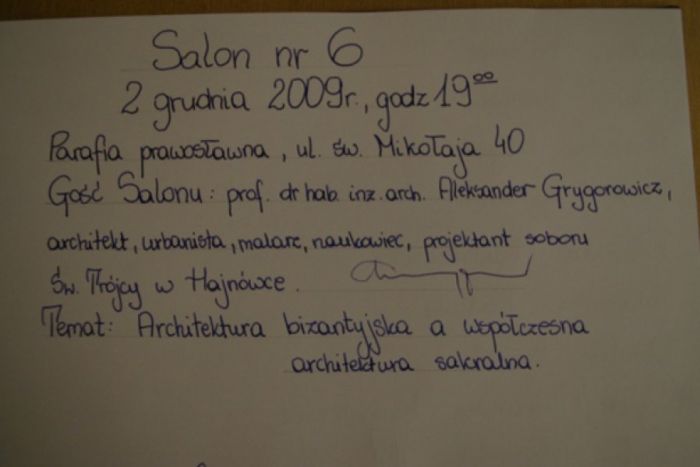 Salon nr 6
2 grudnia 2009r., godz 19⁰⁰
Parafia prawosławna, ul. św. Mikołaja 40
Gość Salonu: prof. dr hab. inż. arch. Aleksander Grygorowicz,
architekt, urbanista, malarz, naukowiec, projektant soboru
Św. Trójcy w Hajnówce.
Temat: Architektura bizantyjska a współczesna
architektura sakralna.